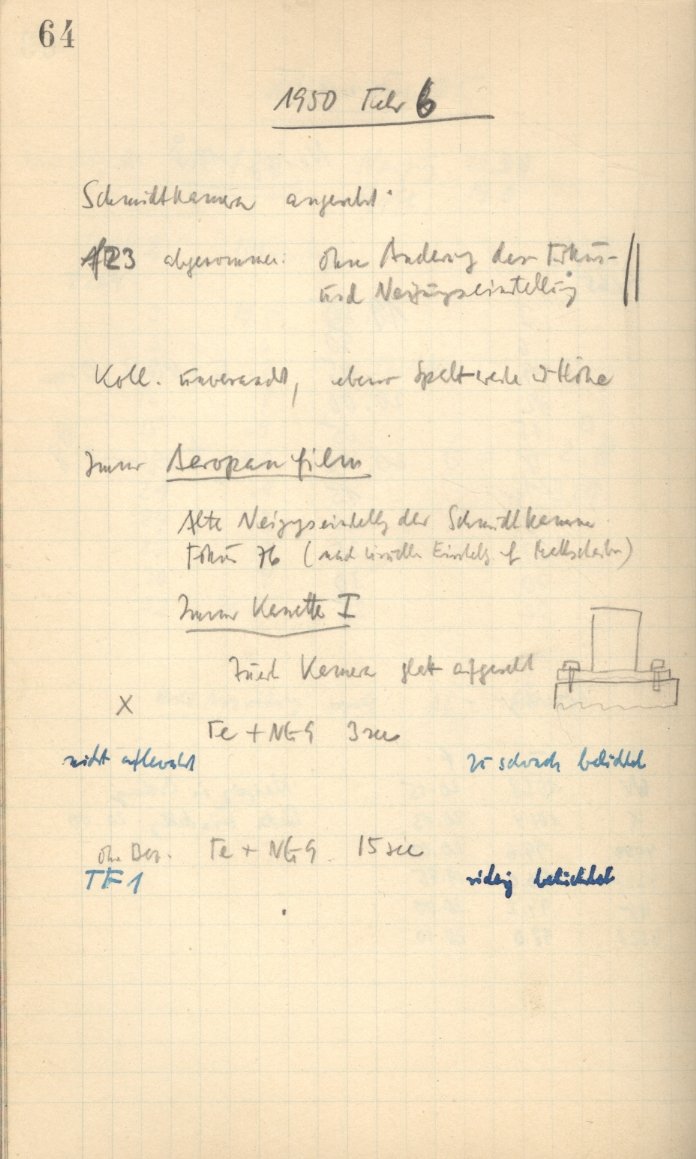 64
1950 Febr 6
Schmidtkamera angesetzt.
f/23 abgenommen: ohne Änderung der Fokus-
und Neigungseinstellung
Koll. unverändert, ebenso Spaltweite u Höhe
Immer Aeropanfilm
Alte Neigungseinstellg der Schmidtkamera
Fokus 76 (nach visueller Einstellg auf Mattscheibe)
Immer Kassette I
Zuerst Kamera glatt aufgesetzt
X
Fe + NG9 3 sec
nicht aufbewahrt zu schwach belichtet
ohne Bez. Fe + NG9 15 sec
TF1 richtig belichtet